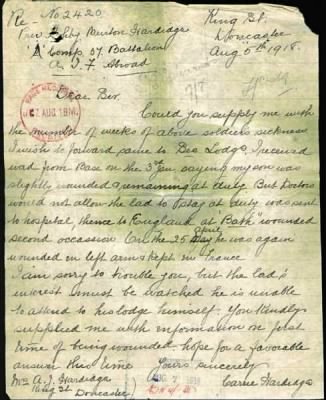 Re - No 2420 King St.
Pte Eby Menton Hardidge Doncaster
"A" Comp 57 Battalion Aug 5th 1918.
A. I. F Abroad
Dear Sir.
Could you supply me with
the number of weeks of above soldiers sickness
I wish to forward same to his Lodge. I received
word from Base on the 3rd Jan saying my son was
slightly wounded & remaining at duty. But Doctors
would not allow the lad to stay at duty was sent
to hospital, thence to England at Bath "wounded
second occassion On the 25 April he was again
wounded in left arm & kept in France
I am sorry to trouble you, but the lad's
interest must be watched he is unable
to attend to his lodge himself. You kindly
supplied me with information on first
time of being wounded hope for a favorable
answer this time Yours sincerely
Mrs A. J. Hardidge Carrie Hardidge
King St
Doncaster
7 AUG 1918